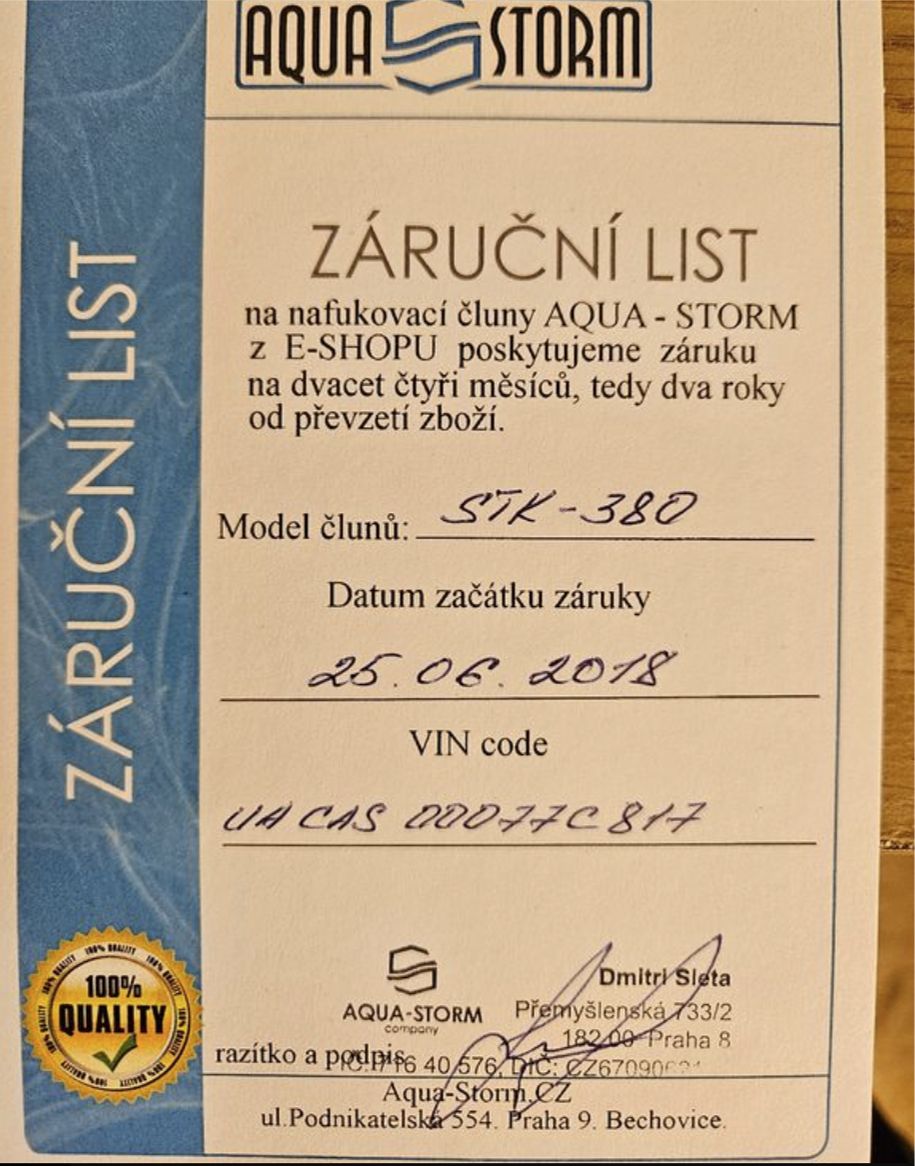 AQUA STORM
ZÁRUČNÍ LIST
ZÁRUČNÍ LIST
na nafukovací čluny AQUA - STORM
z E-SHOPU poskytujeme záruku
na dvacet čtyři měsíců, tedy dva roky
od převzetí zboží.
Model člunů: STK-380
Datum začátku záruky
25.06.2018
VIN code
UA CAS 00077C817
100%
QUALITY
AQUA-STORM
company
Dmitri Sleta
Přemyšlenská 733/2
182 00 Praha 8
razítko a podpis
16 40 576, DIČ:
Aqua-Storm.CZ
ul.Podnikatelská 554. Praha 9. Bechovice.